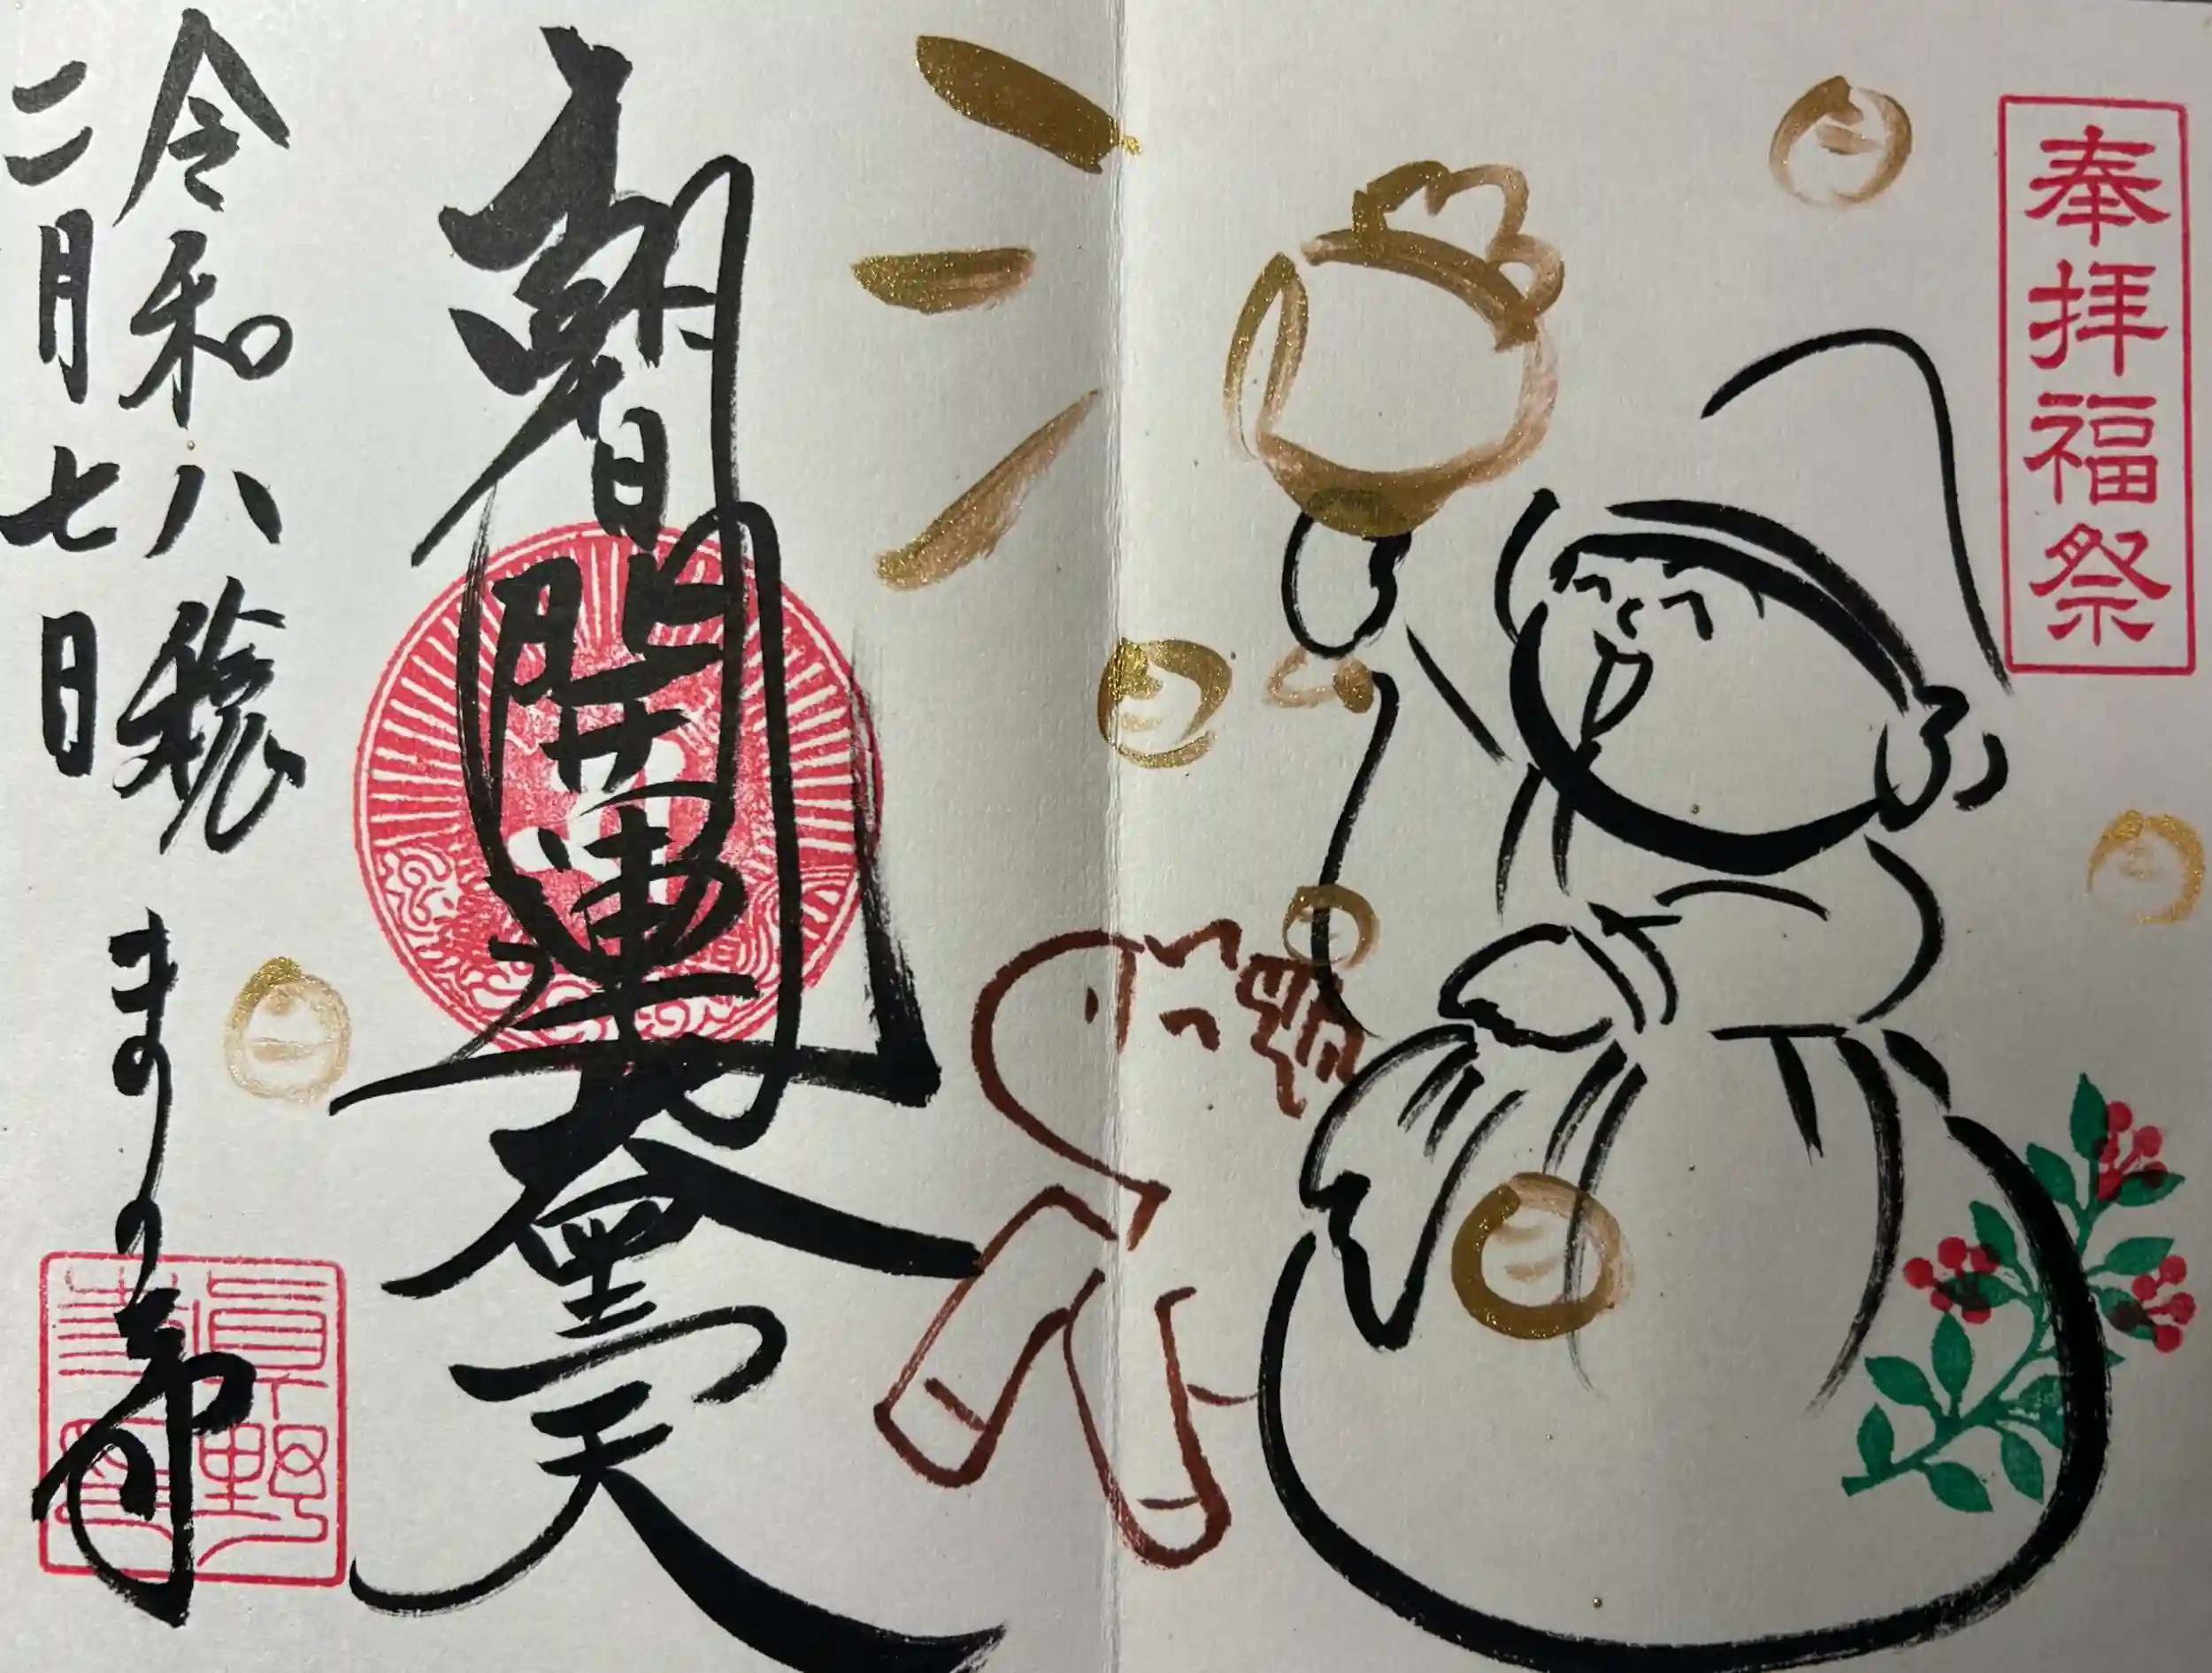 奉拝福祭
朝日開運大黒天
令和八
二月七日
まの寺